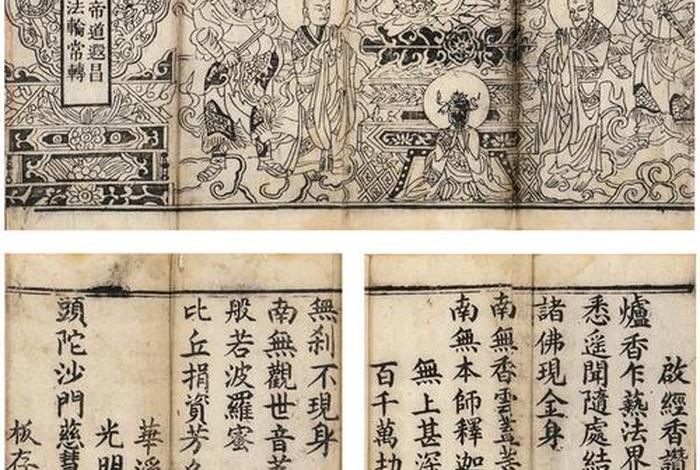 帝道遐昌
法輪常轉
啟經香讚
爐香乍爇法界
悉遙聞隨處結
諸佛現金身
南無香雲蓋菩
南無本師釋迦
無上甚深
百千萬劫
無刹不現身
南無觀世音菩
般若波羅蜜
比丘捐資芳
華
光明
頭陀沙門慈慧
板存